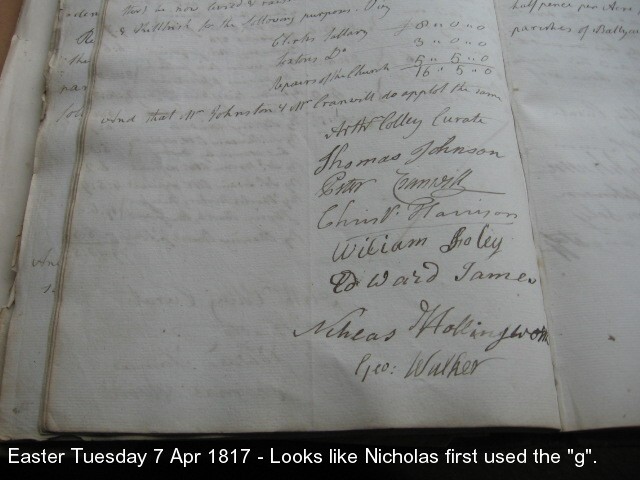 & for the following purposes. Viz
half pence per Acre
parishes of Bally
Clerks Sallary 8 " 0 " 0
Sextons Do 3 " 0 " 0
Repairs of the Church 5 " 5 " 0
16 " 5 " 0
And that Mr Johnston & Mr Cranwill do applot the same
Arthr Colley Curate
Thomas Johnson
Peter Cranwill
Chrisr. Harrison
William Boley
Edward James
Nicheas Hollingworth
Geo: Walker
Easter Tuesday 7 Apr 1817 - Looks like Nicholas first used the "g".